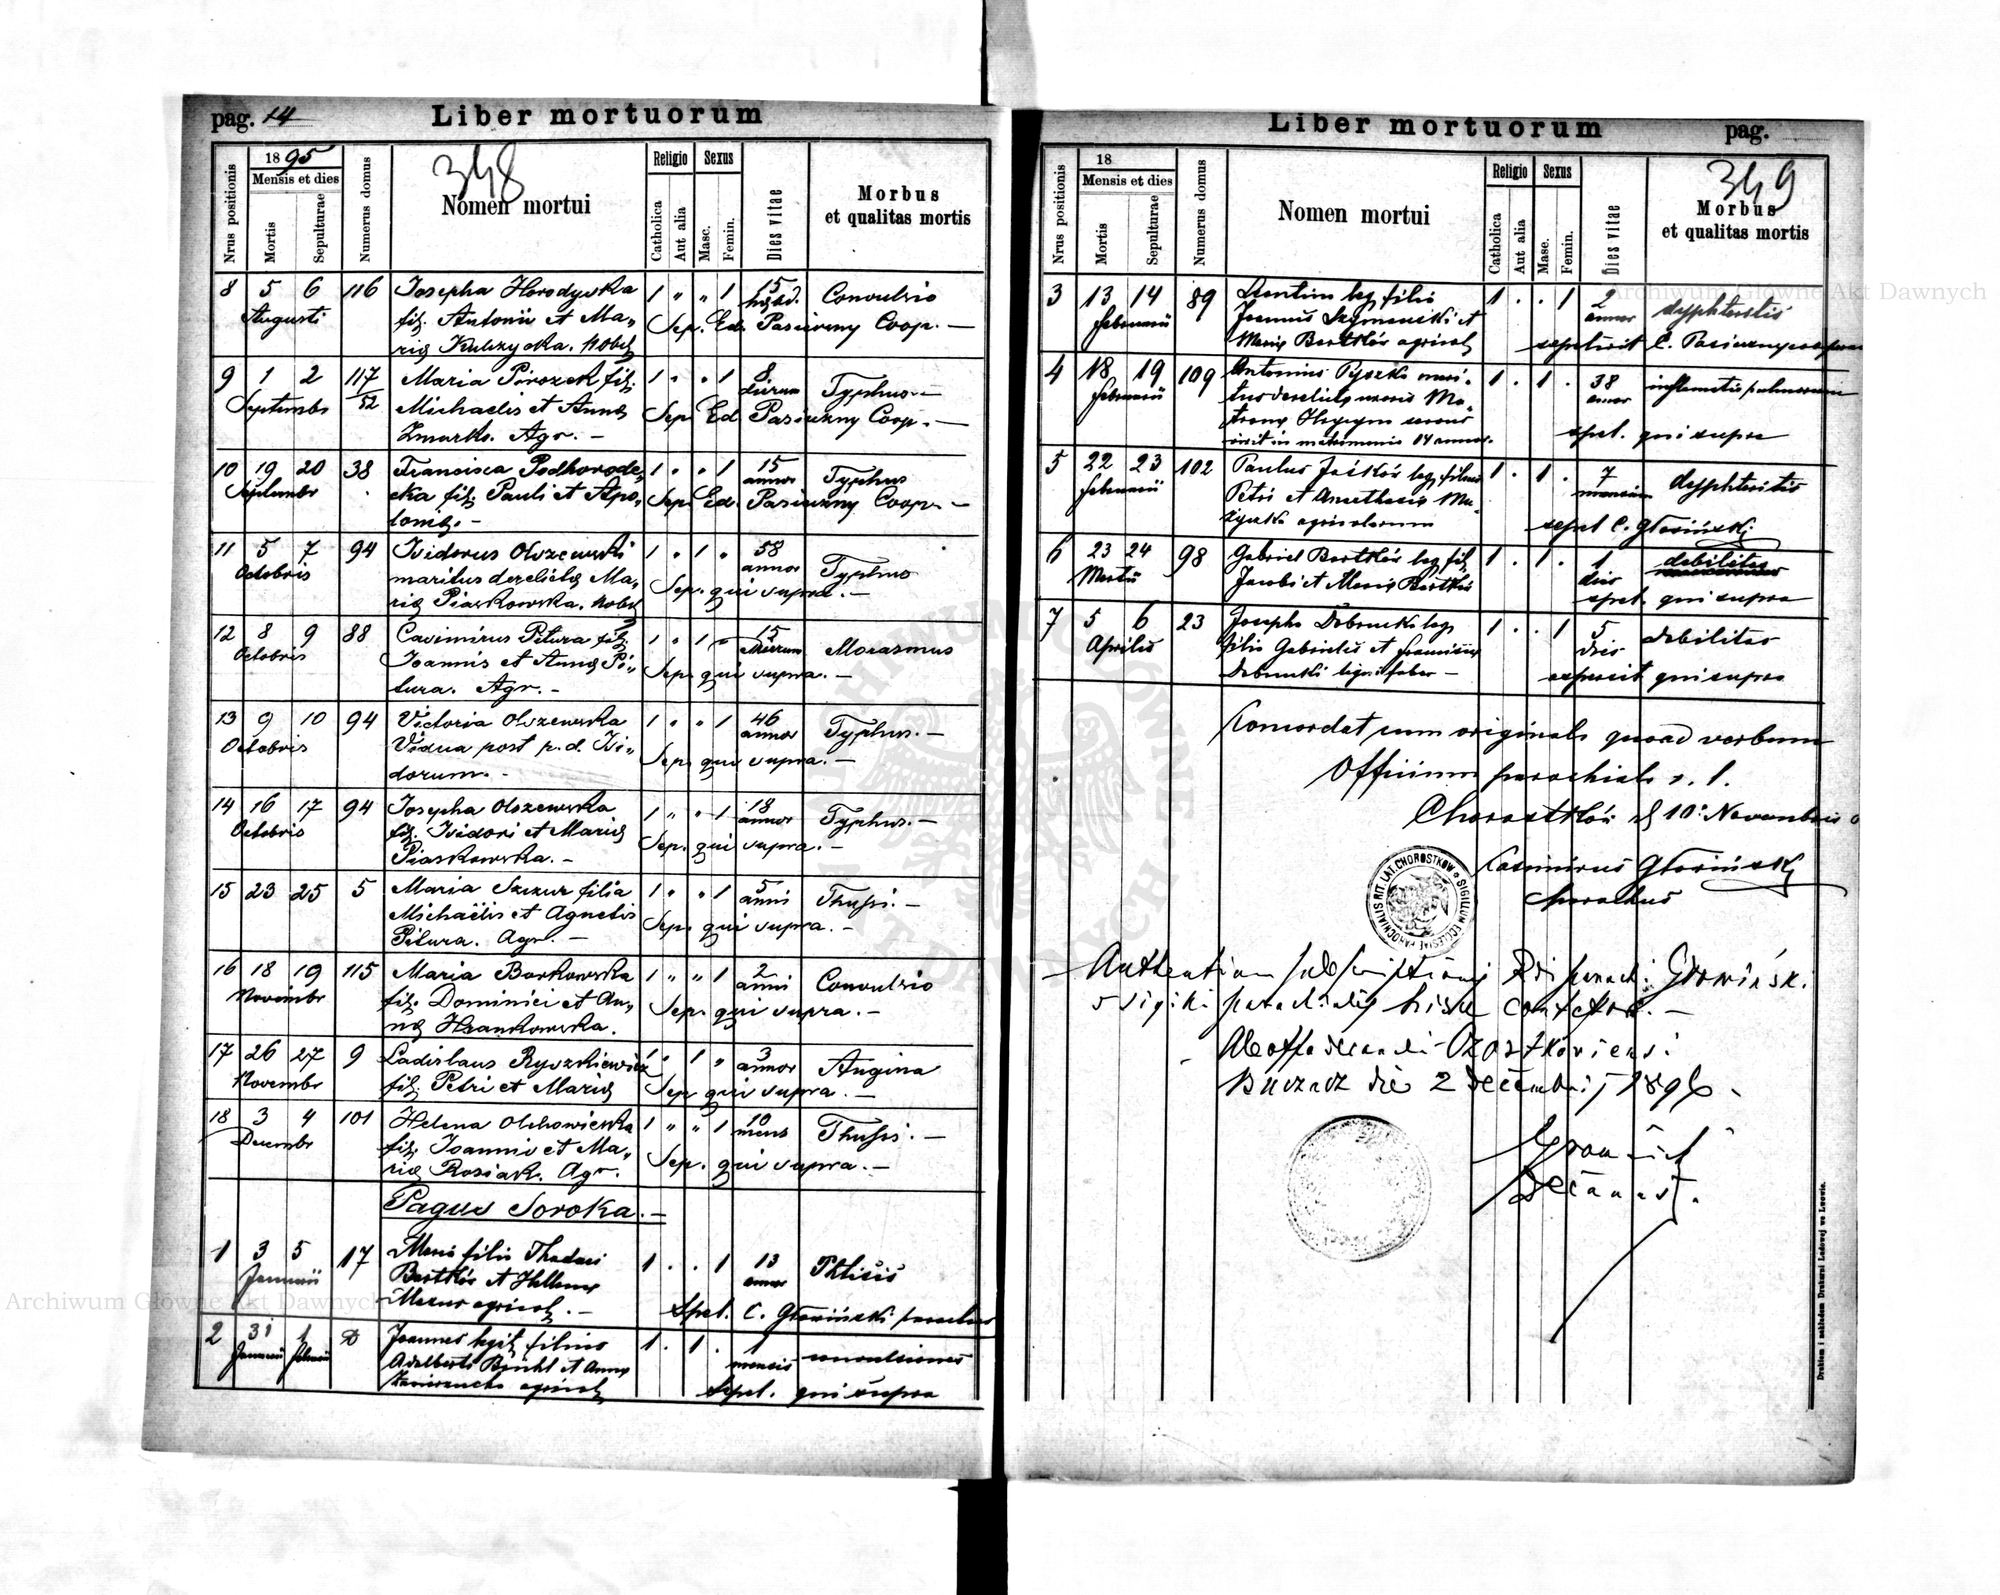 pag. 14 Liber mortuorum
Nrus positionis
1895
Mensis et dies
Mortis
Sepulturae
Numerus domus
348
Nomen mortui
Religio
Catholica
Aut alia
Sexus
Masc.
Femin.
Dies vitae
Morbus
et qualitas mortis
8 5 6 116 Josepha Horodyska 1 " " 1 15 Convulsio
Augusti fil. Antonii et Ma„ Sep. Ed. Pasieczny Coop. —
ria Kulczycka. Nobil
9 1 2 117/52 Maria Pirozek fil. 1 " " 1 8 dierum Typhus —
Septembr Michaelis et Anna Sep. Ed Pasieczny Coop. —
Zmurko. Agr. —
10 19 20 38 Francisca Podhorode„ 1 " " 1 15 annor Typhus
Septembr cka fil. Pauli et Apo„ Sep. Ed. Pasieczny Coop. —
lonia. —
11 5 7 94 Isidorus Olszewski 1 " 1 " 58 annor Typhus
Octobris maritus derelicta Ma„ Sep. qui supra. —
ria Piaskowska. Nobil
12 8 9 88 Casimirus Pitura fil. 1 " 1 " 15 dierum Marasmus
Octobris Joannis et Anna Pi„ Sep. qui supra. —
tura. Agr. —
13 9 10 94 Victoria Olszewska 1 " " 1 46 annor Typhus. —
Octobris Vidua post p. d. Isi„ Sep. qui supra. —
dorum. —
14 16 17 94 Josepha Olszewska 1 " " 1 18 annor Typhus. —
Octobris fil. Isidori et Maria Sep. qui supra. —
Piaskowska. —
15 23 25 5 Maria Szczur filia 1 " " 1 5 anni Thussi. —
Michaëlis et Agnetis Sep. qui supra. —
Pitura. Agr. —
16 18 19 115 Maria Borkowska 1 " " 1 2 anni Convulsio
Novembr fil. Dominici et An„ Sep. qui supra. —
na
17 26 27 9 Ladislaus Ryszkiewicz 1 " 1 " 3 annor Angina
Novembr fil. Petri et Maria Sep. qui supra. —
18 3 4 101 Helena Olchowiecka 1 " " 1 10 mens Thussi. —
Decembr fil. Joannis et Ma„ Sep. qui supra. —
ria Rosiak. Agr.
Pagus Soroka. —
1 3 5 17 Maria filia Thadaei 1 . . 1 13 annor Phtisis
Januarii Bartków et Hellena
Mazur agricol. — Spel. C. Głowiński parochus
2 31 1 Joannes legit. filius 1 . 1 . 1 mensis convulsiones
Januarii Adalberti et Anna
agricol Sepel. qui supra
Liber mortuorum pag.
Nrus positionis
18
Mensis et dies
Mortis
Sepulturae
Numerus domus
Nomen mortui
Religio
Catholica
Aut alia
Sexus
Masc.
Femin.
Dies vitae
349
Morbus
et qualitas mortis
3 13 14 89 leg. filia 1 . . 1 2 annor dyphteritis
Februarii Joannis Szymański et
Maria Bartków agricol sepelivit E. Pasieczny
4 18 19 109 Antonius Pyszka mari- 1 . 1 . 38 annor inflamatio pulmonum
Februarii tus derelicta uxoris Ma-
trona
vixit in matrimonio 14 annor. spel. qui supra
5 22 23 102 Paulus Jaśków leg. filius 1 . 1 . 7 mensium dyphteritis
Februarii Petri et Anasthasia Mu-
zyczka agricolarum sepel C. Głowiński
6 23 24 98 Gabriel Bartków leg fil. 1 . 1 . 1 die debilitas
Martii Jacobi et Maria Bartków spel. qui supra
7 5 6 23 Josepha Dobrucki leg. 1 . . 1 5 dies debilitas
Aprilis filia Gabrielis et Francisca
Dobrucki ligni faber — qui supra
Concordat cum originali quoad verbum
Officium parochiale r. l.
Chorostków d 10. Novembris
Casimirus Głowiński
parochus
SIGILLUM ECCLESIAE PAROCHIALIS RIT. LAT. CHOROSTKOW
Authenticam subscriptionis Rdi parochi Głowiński
sigilli parochialis hisce
Ab off. decanali Czortkoviensi
Buczacz die 2 Decembris 1896.
Decanus.
Drukiem i nakładem Drukarni Ludowej we Lwowie.
ARCHIWUM GŁÓWNE AKT DAWNYCH
Archiwum Główne Akt Dawnych
Archiwum Główne Akt Dawnych